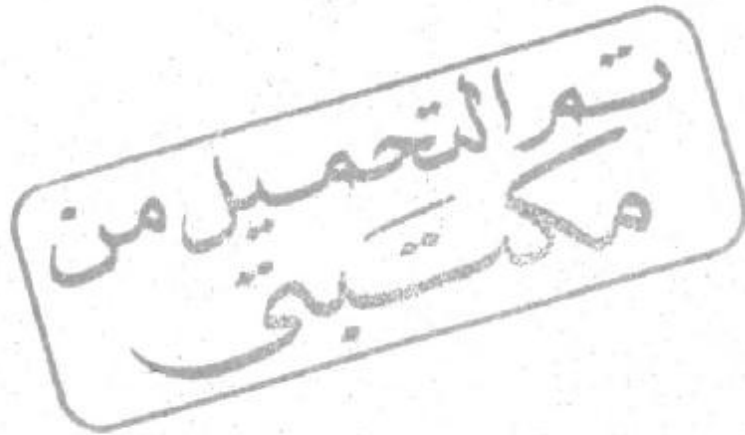 تم التحميل من
مكتبتي